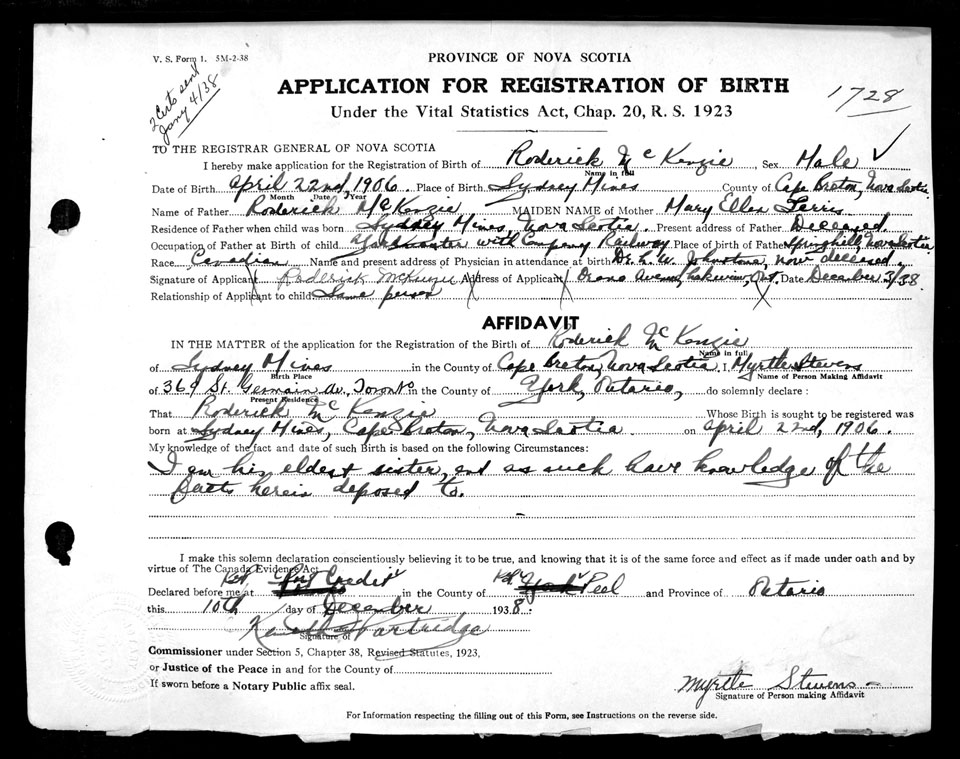 V. S. Form 1. 5M-2-38
PROVINCE OF NOVA SCOTIA
2 Certs sent
Jany 4/38
APPLICATION FOR REGISTRATION OF BIRTH
1728
Under the Vital Statistics Act, Chap. 20, R. S. 1923
TO THE REGISTRAR GENERAL OF NOVA SCOTIA
I hereby make application for the Registration of Birth of Roderick McKenzie Sex Male ✓
Name in full
Date of Birth April 22nd, 1906. Place of Birth Sydney Mines County of Cape Breton, Nova Scotia
Month Date Year
Name of Father Roderick McKenzie MAIDEN NAME of Mother Mary Ellen Terris
Residence of Father when child was born Sydney Mines, Nova Scotia. Present address of Father Deceased
Occupation of Father at Birth of child Yardmaster with Company Railway Place of birth of Father Springhill, Nova Scotia
Race Canadian Name and present address of Physician in attendance at birth Dr. L. W. Johnstone, now deceased
Signature of Applicant Roderick McKenzie Address of Applicant Orono Avenue, Lakeview, Ont. Date December 3/38.
Relationship of Applicant to child Same person
AFFIDAVIT
IN THE MATTER of the application for the Registration of the Birth of Roderick McKenzie
Name in full
of Sydney Mines in the County of Cape Breton, Nova Scotia I, Myrtle Stevens
Birth Place Name of Person Making Affidavit
of 369 St. Germain Av., Toronto in the County of York, Ontario, do solemnly declare :
Present Residence
That Roderick McKenzie Whose Birth is sought to be registered was
born at Sydney Mines, Cape Breton, Nova Scotia on April 22nd, 1906.
My knowledge of the fact and date of such Birth is based on the following Circumstances:
I am his eldest sister, and as such have knowledge of the
facts herein deposed to.
I make this solemn declaration conscientiously believing it to be true, and knowing that it is of the same force and effect as if made under oath and by
virtue of The Canada Evidence Act
Declared before me at Port Credit in the County of York Peel and Province of Ontario
this 10th day of December 1938.
Kenneth Partridge
Signature of
Commissioner under Section 5, Chapter 38, Revised Statutes, 1923,
or Justice of the Peace in and for the County of
If sworn before a Notary Public affix seal.
Myrtle Stevens
Signature of Person making Affidavit
For Information respecting the filling out of this Form, see Instructions on the reverse side.